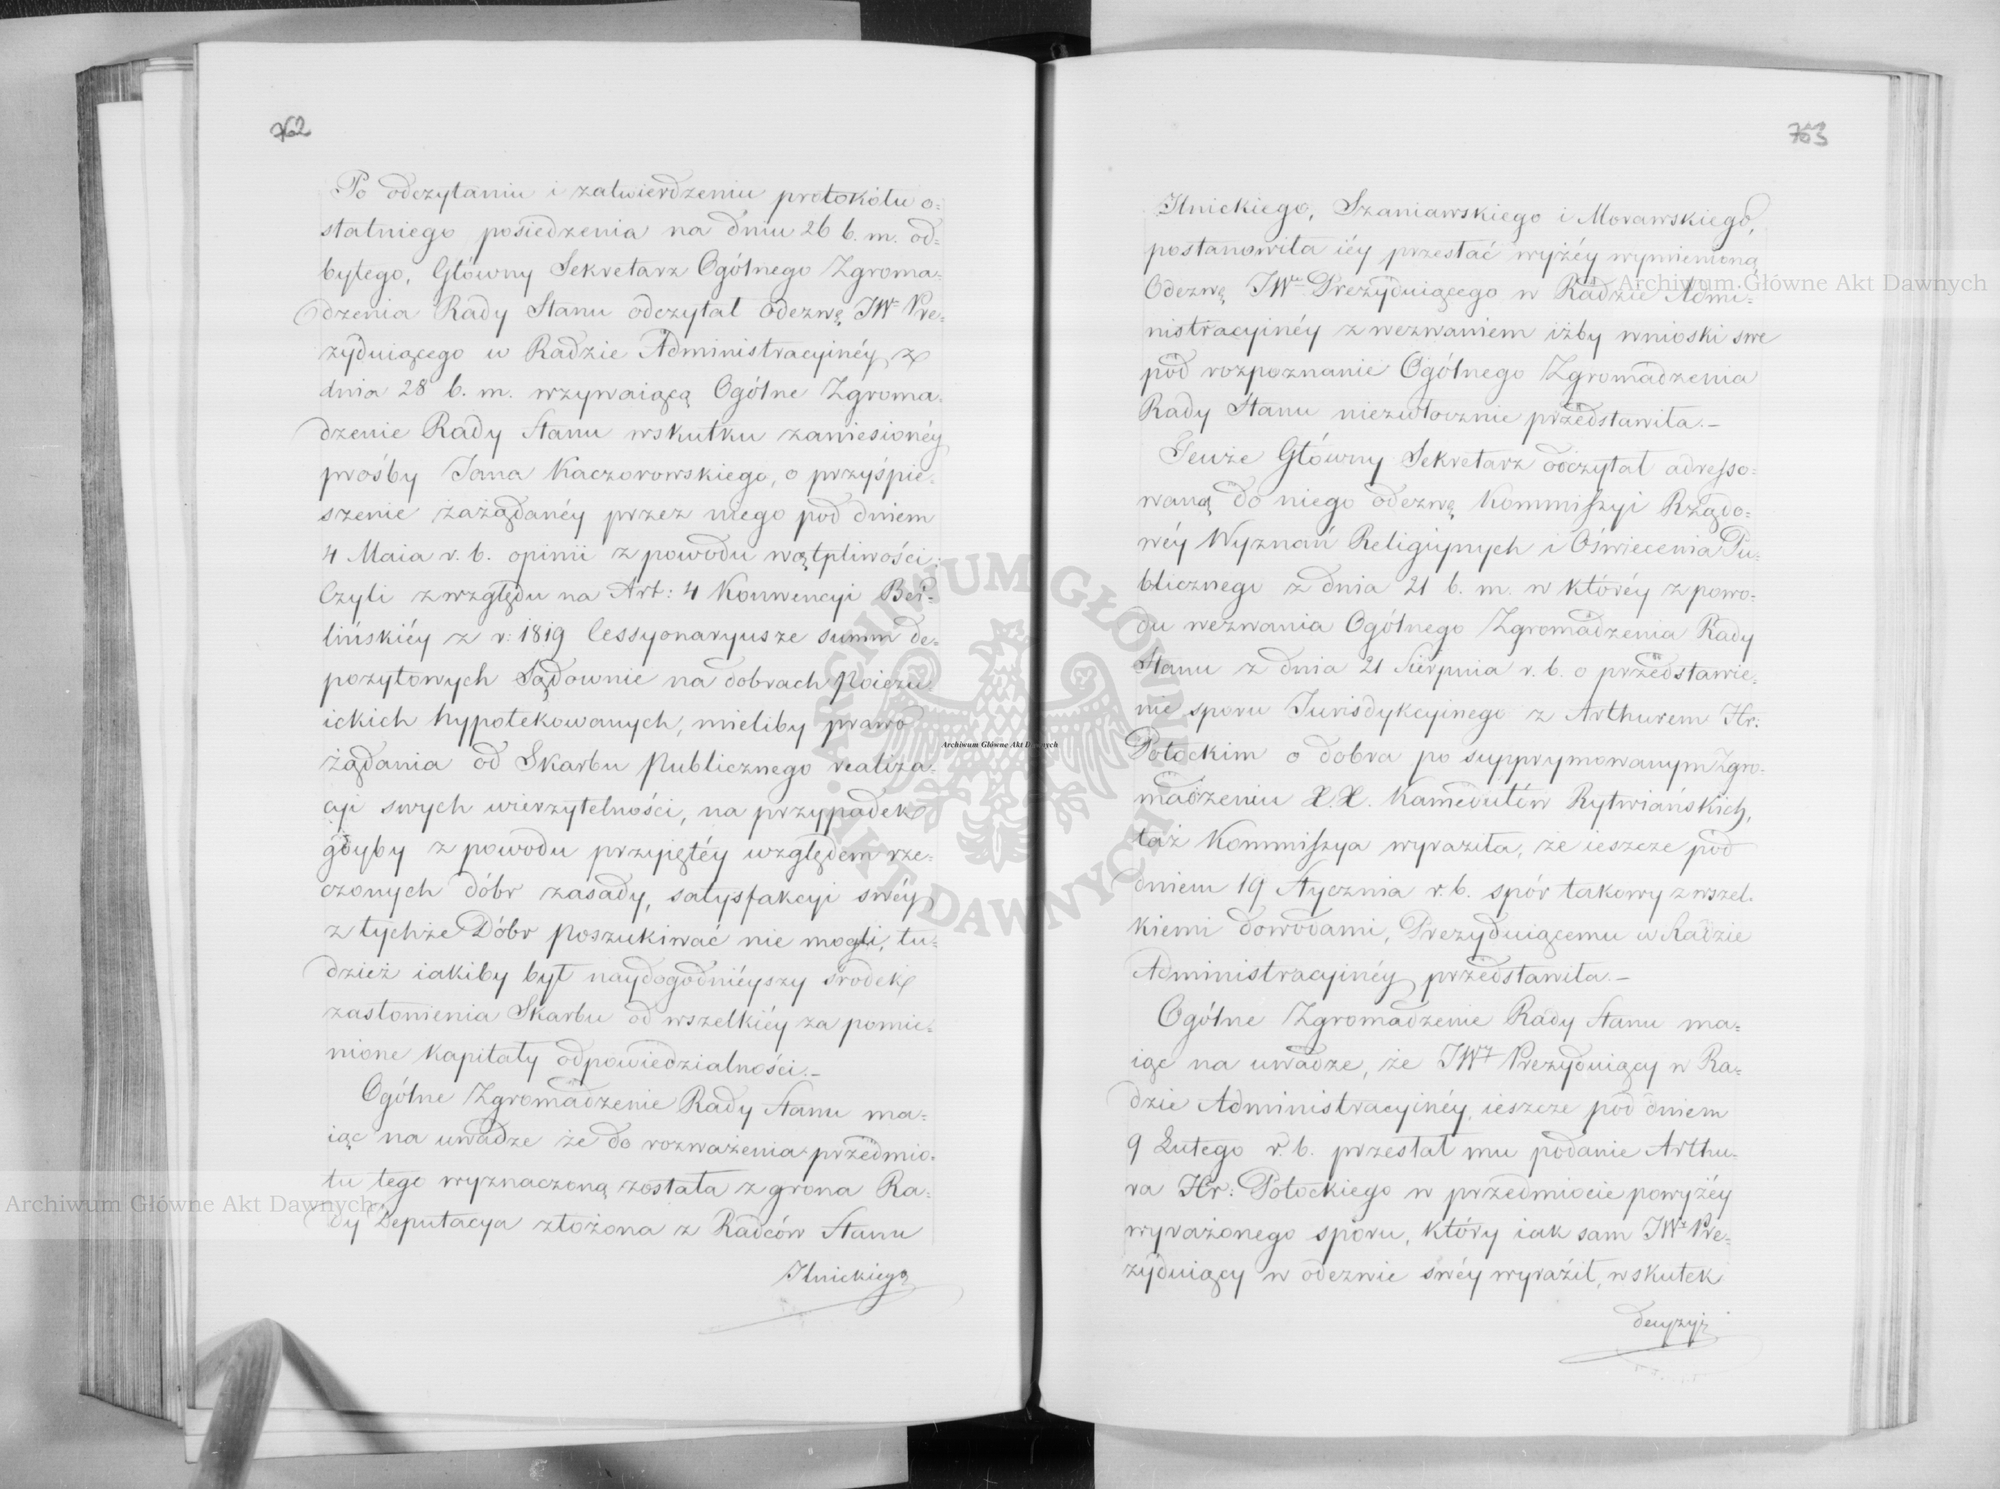 762
Po odczytaniu i zatwierdzeniu protokółu o=
statniego posiedzenia na dniu 26 b. m. od=
bytego, Główny Sekretarz Ogólnego Zgroma=
dzenia Rady Stanu odczytał odezwę JW Pre=
zyduiącego w Radzie Administracyinéy z
dnia 28 b. m. wzywaiącą Ogólne Zgroma=
dzenie Rady Stanu wskutku zaniesionéy
prośby Jana Kaczorowskiego, o przyśpie=
szenie zażądanéy przez niego pod dniem
4 Maia r. b. opinii z powodu wątpliwości:
Czyli z względu na Art: 4 Konwencyi Ber=
lińskiéy z r: 1819 Cessyonaryusze summ de=
pozytowych Sądownie na dobrach Poiezu
ickich hypotekowanych, mieliby prawo
żądania od Skarbu Publicznego realiza=
cyi swych wierzytelności, na przypadek
gdyby z powodu przyiętéy względem rze=
czonych dóbr zasady, satysfakcyi swéy
z tychże Dóbr poszukiwać nie mogli, tu=
dzież iakiby był naydogodniéyszy środek
zasłonienia Skarbu od wszelkiéy za pomie=
nione kapitały odpowiedzialności.—
Ogólne Zgromadzenie Rady Stanu ma=
iąc na uwadze że do rozważenia przedmio=
tu tego wyznaczoną została z grona Ra=
dy Deputacya złożona z Radców Stanu
Ilnickiego
763
Ilnickiego, Szaniawskiego i Morawskiego,
postanowiła iéy przesłać wyżéy wymienioną
Odezwę JW Prezyduiącego w Radzie Admi=
nistracyinéy z wezwaniem iżby wnioski swe
pod rozpoznanie Ogólnego Zgromadzenia
Rady Stanu niezwłocznie przedstawiła.—
Tenże Główny Sekretarz odczytał adresso=
waną do niego odezwę Kommissyi Rządo=
wéy Wyznań Religiynych i Oświecenia Pu=
blicznego z dnia 21 b. m. w któréy z powo=
du wezwania Ogólnego Zgromadzenia Rady
Stanu z dnia 21 Sierpnia r. b. o przedstawie=
nie sporu Jurisdykcyinego z Arthurem Hr:
Potockim o dobra po supprymowanym Zgro=
madzeniu X.X. Kamedułów Rytwiańskich,
taż Kommissya wyraziła, że ieszcze pod
dniem 19 Stycznia r. b. spór takowy z wszel=
kiemi dowodami, Prezyduiącemu w Radzie
Administracyinéy przedstawiła.—
Ogólne Zgromadzenie Rady Stanu ma=
iąc na uwadze, że JW Prezyduiący w Ra=
dzie Administracyinéy, ieszcze pod dniem
9 Lutego r. b. przesłał mu podanie Arthu=
ra Hr: Potockiego w przedmiocie powyżéy
wyrażonego sporu, który iak sam JW Pre=
zyduiący w odezwie swéy wyraził, w skutek
decyzyi
Archiwum Główne Akt Dawnych
Archiwum Główne Akt Dawnych
Archiwum Główne Akt Dawnych
ARCHIWUM GŁÓWNE
AKT DAWNYCH